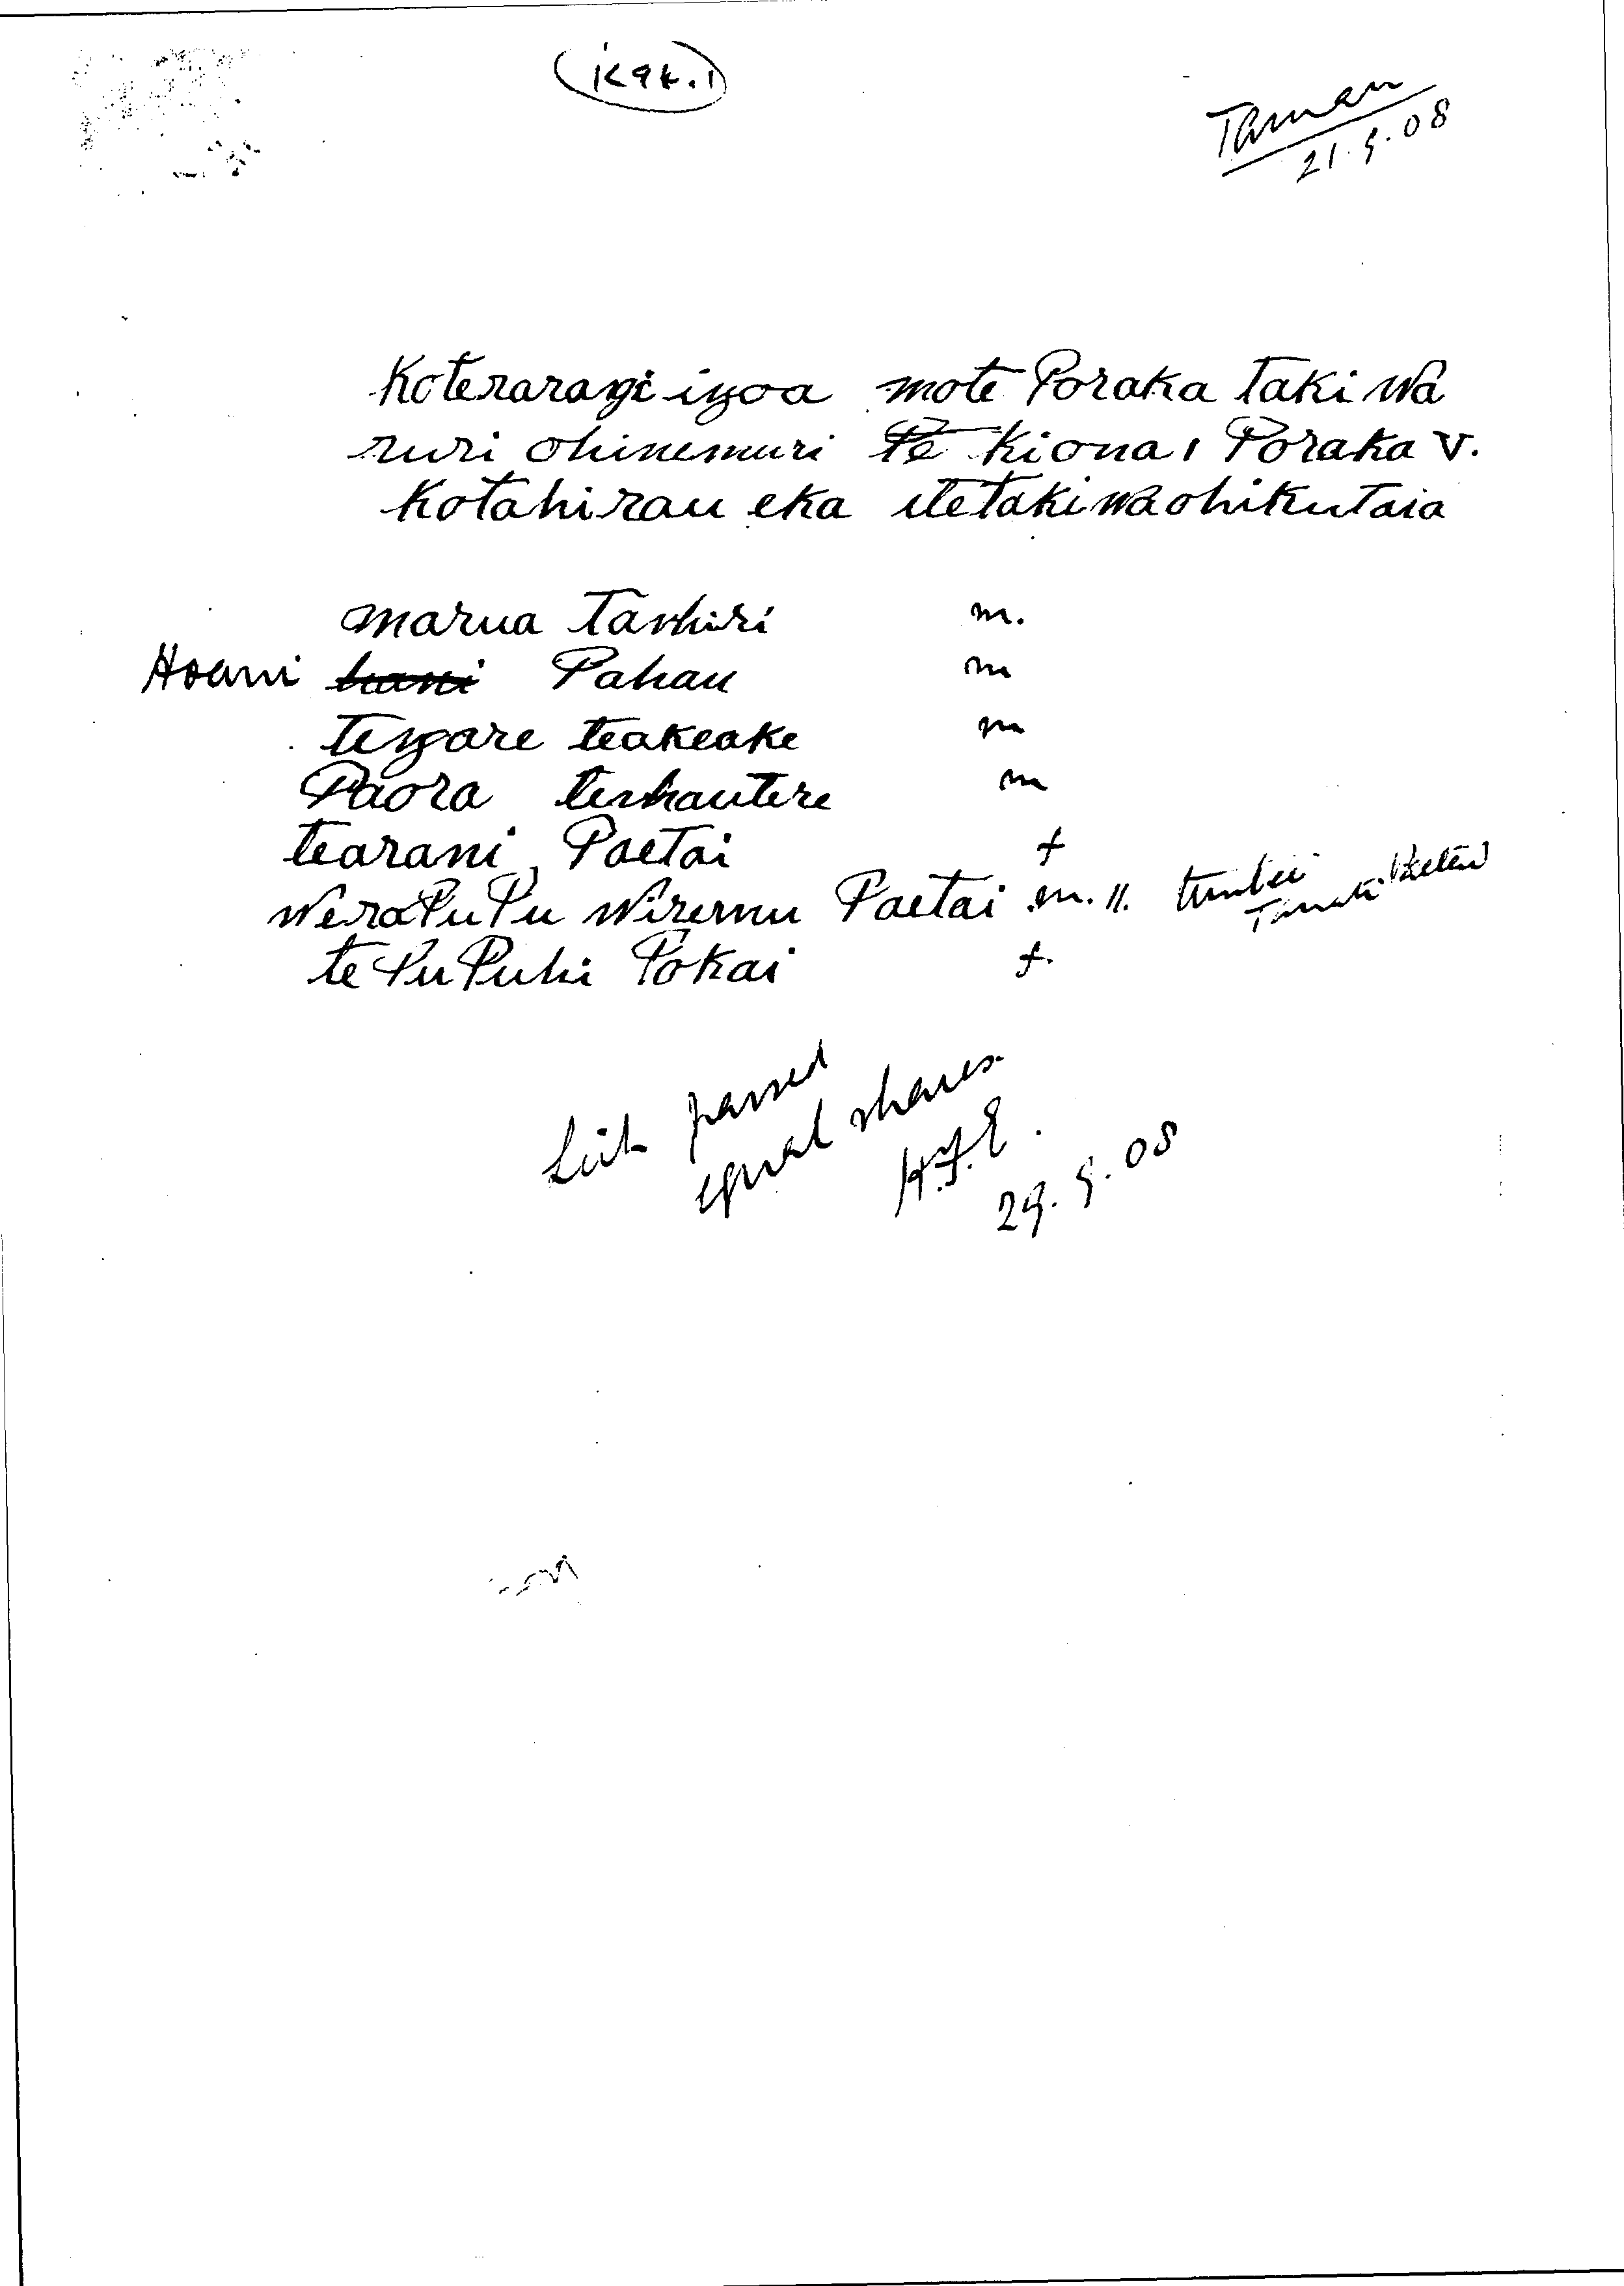 (K94.1)
21.5.08
Koteraragi igoa mote Poraka Takiwa
ruri ohinemuri Pe Kiona 1 Poraka V.
Kotahirau eka itetakiwaohikutaia
marua Tawhiri m.
Hoani hani Pahau m
Tegare teakeake m
Paora tewhautere m
tearani Paetai f
weraPuPu wiremu Paetai m. 11. trustee
te PuPuhi Pokai f.
List passed
equal shares.
H.F.E.
29.5.08